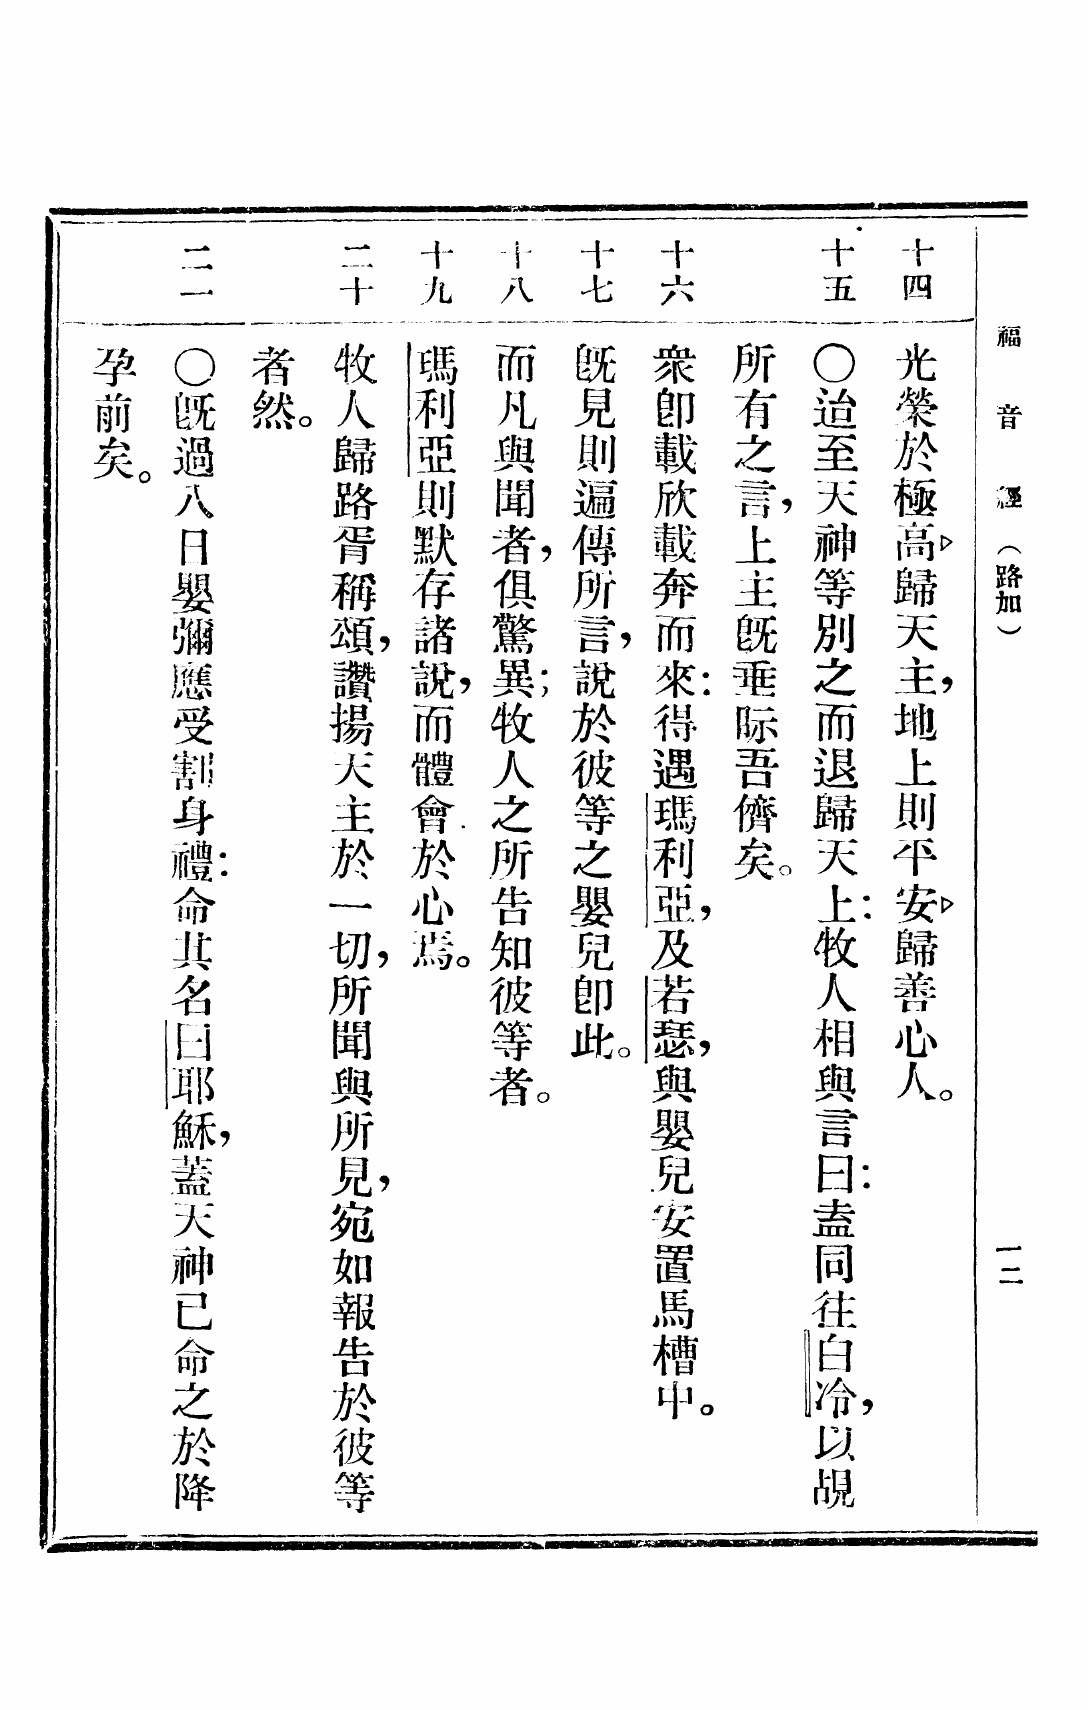 福音經(路加) 一二
十四 光榮於極高▷歸天主，地上則平安▷歸善心人。
十五 ○迨至天神等別之而退歸天上：牧人相與言曰：盍同往白冷，以覘
所有之言，上主旣垂际吾儕矣。
十六 衆卽載欣載奔而來：得遇瑪利亞，及若瑟，與嬰兒安置馬槽中。
十七 旣見則遍傳所言，說於彼等之嬰兒卽此。
十八 而凡與聞者，俱驚異；牧人之所告知彼等者。
十九 瑪利亞則默存諸說，而體會於心焉。
二十 牧人歸路胥稱頌，讚揚天主於一切，所聞與所見，宛如報告於彼等
者然。
二一 ○旣過八日嬰彌應受割身禮：命其名曰耶穌，蓋天神已命之於降
孕前矣。